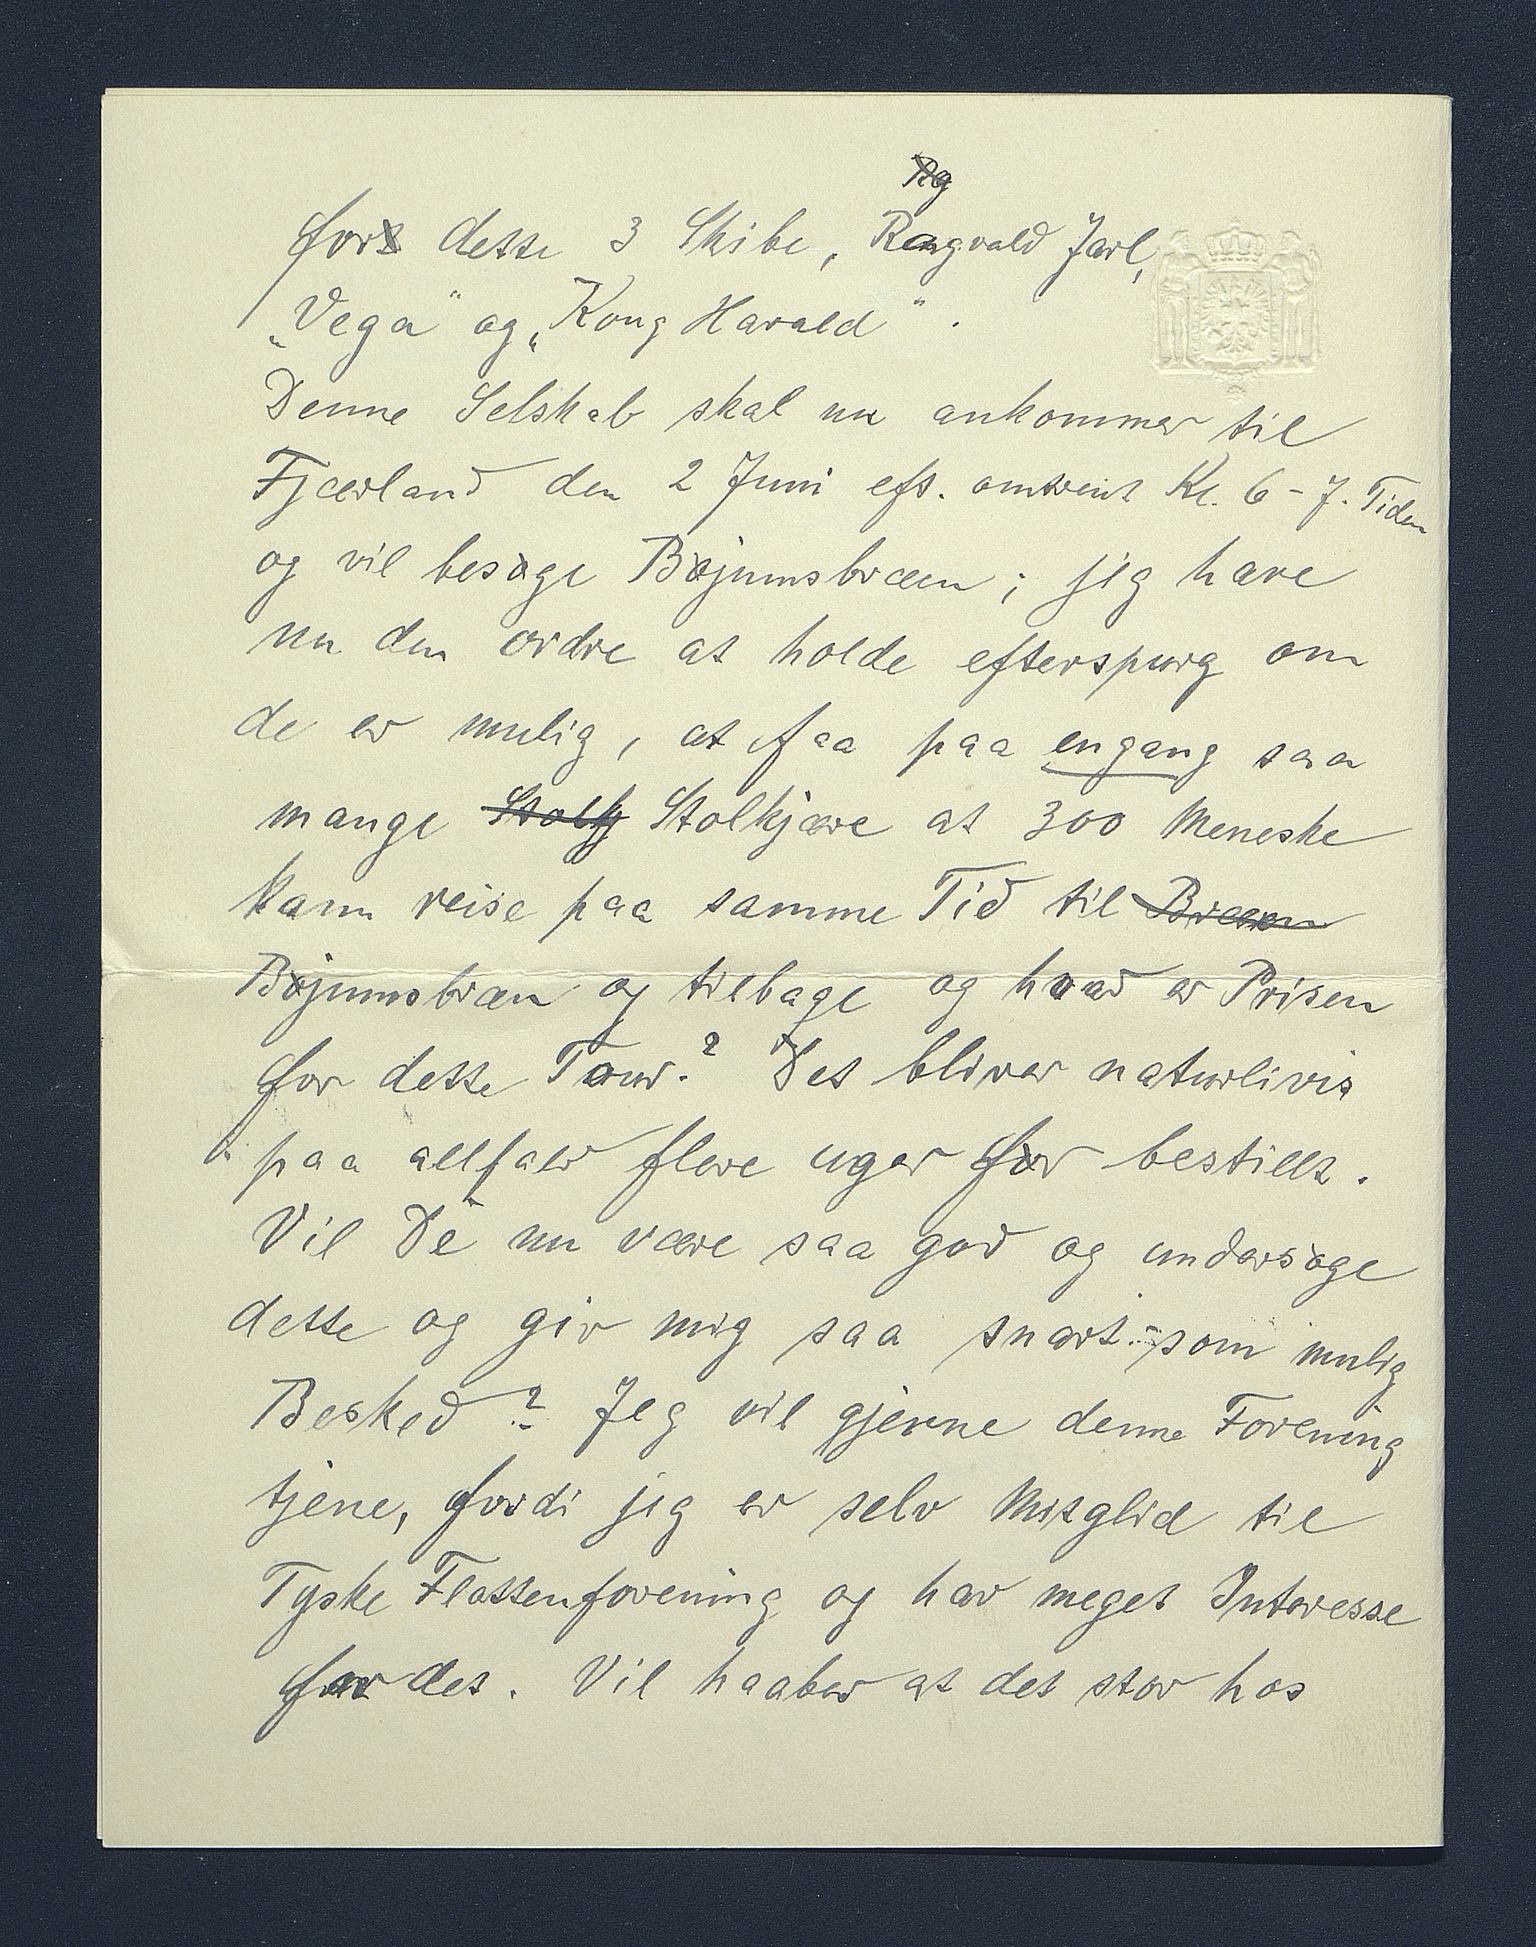 for dette 3 Skibe, Rangvald Jarl,
„Vega" og „Kong Harald".
Denne Selskab skal nu ankommer til
Fjærland den 2 Juni eft. omtrent Kl. 6-7. Tiden
og vil besøge Bøjumsbræen; jeg have
nu den ordre at holde efterspurg om
de er mulig, at faa paa engang saa
mange Stolkj Stolkjære at 300 Meneske
kann reise paa samme Tid til Bræen
Bøjumsbræn og tilbage og hvad er Prisen
for dette Tour? Det bliver naturlivis
paa allfaler flere uger før bestillt.
Vil De nu være saa god og undersøge
dette og giv mig saa snart som mulig
Besked? Jeg vil gjerne denne Forening
tjene, fordi jeg er selv Mitglid til
Tyske Flottenforening og har meget Interesse
for det. Vil haaber at det står hos